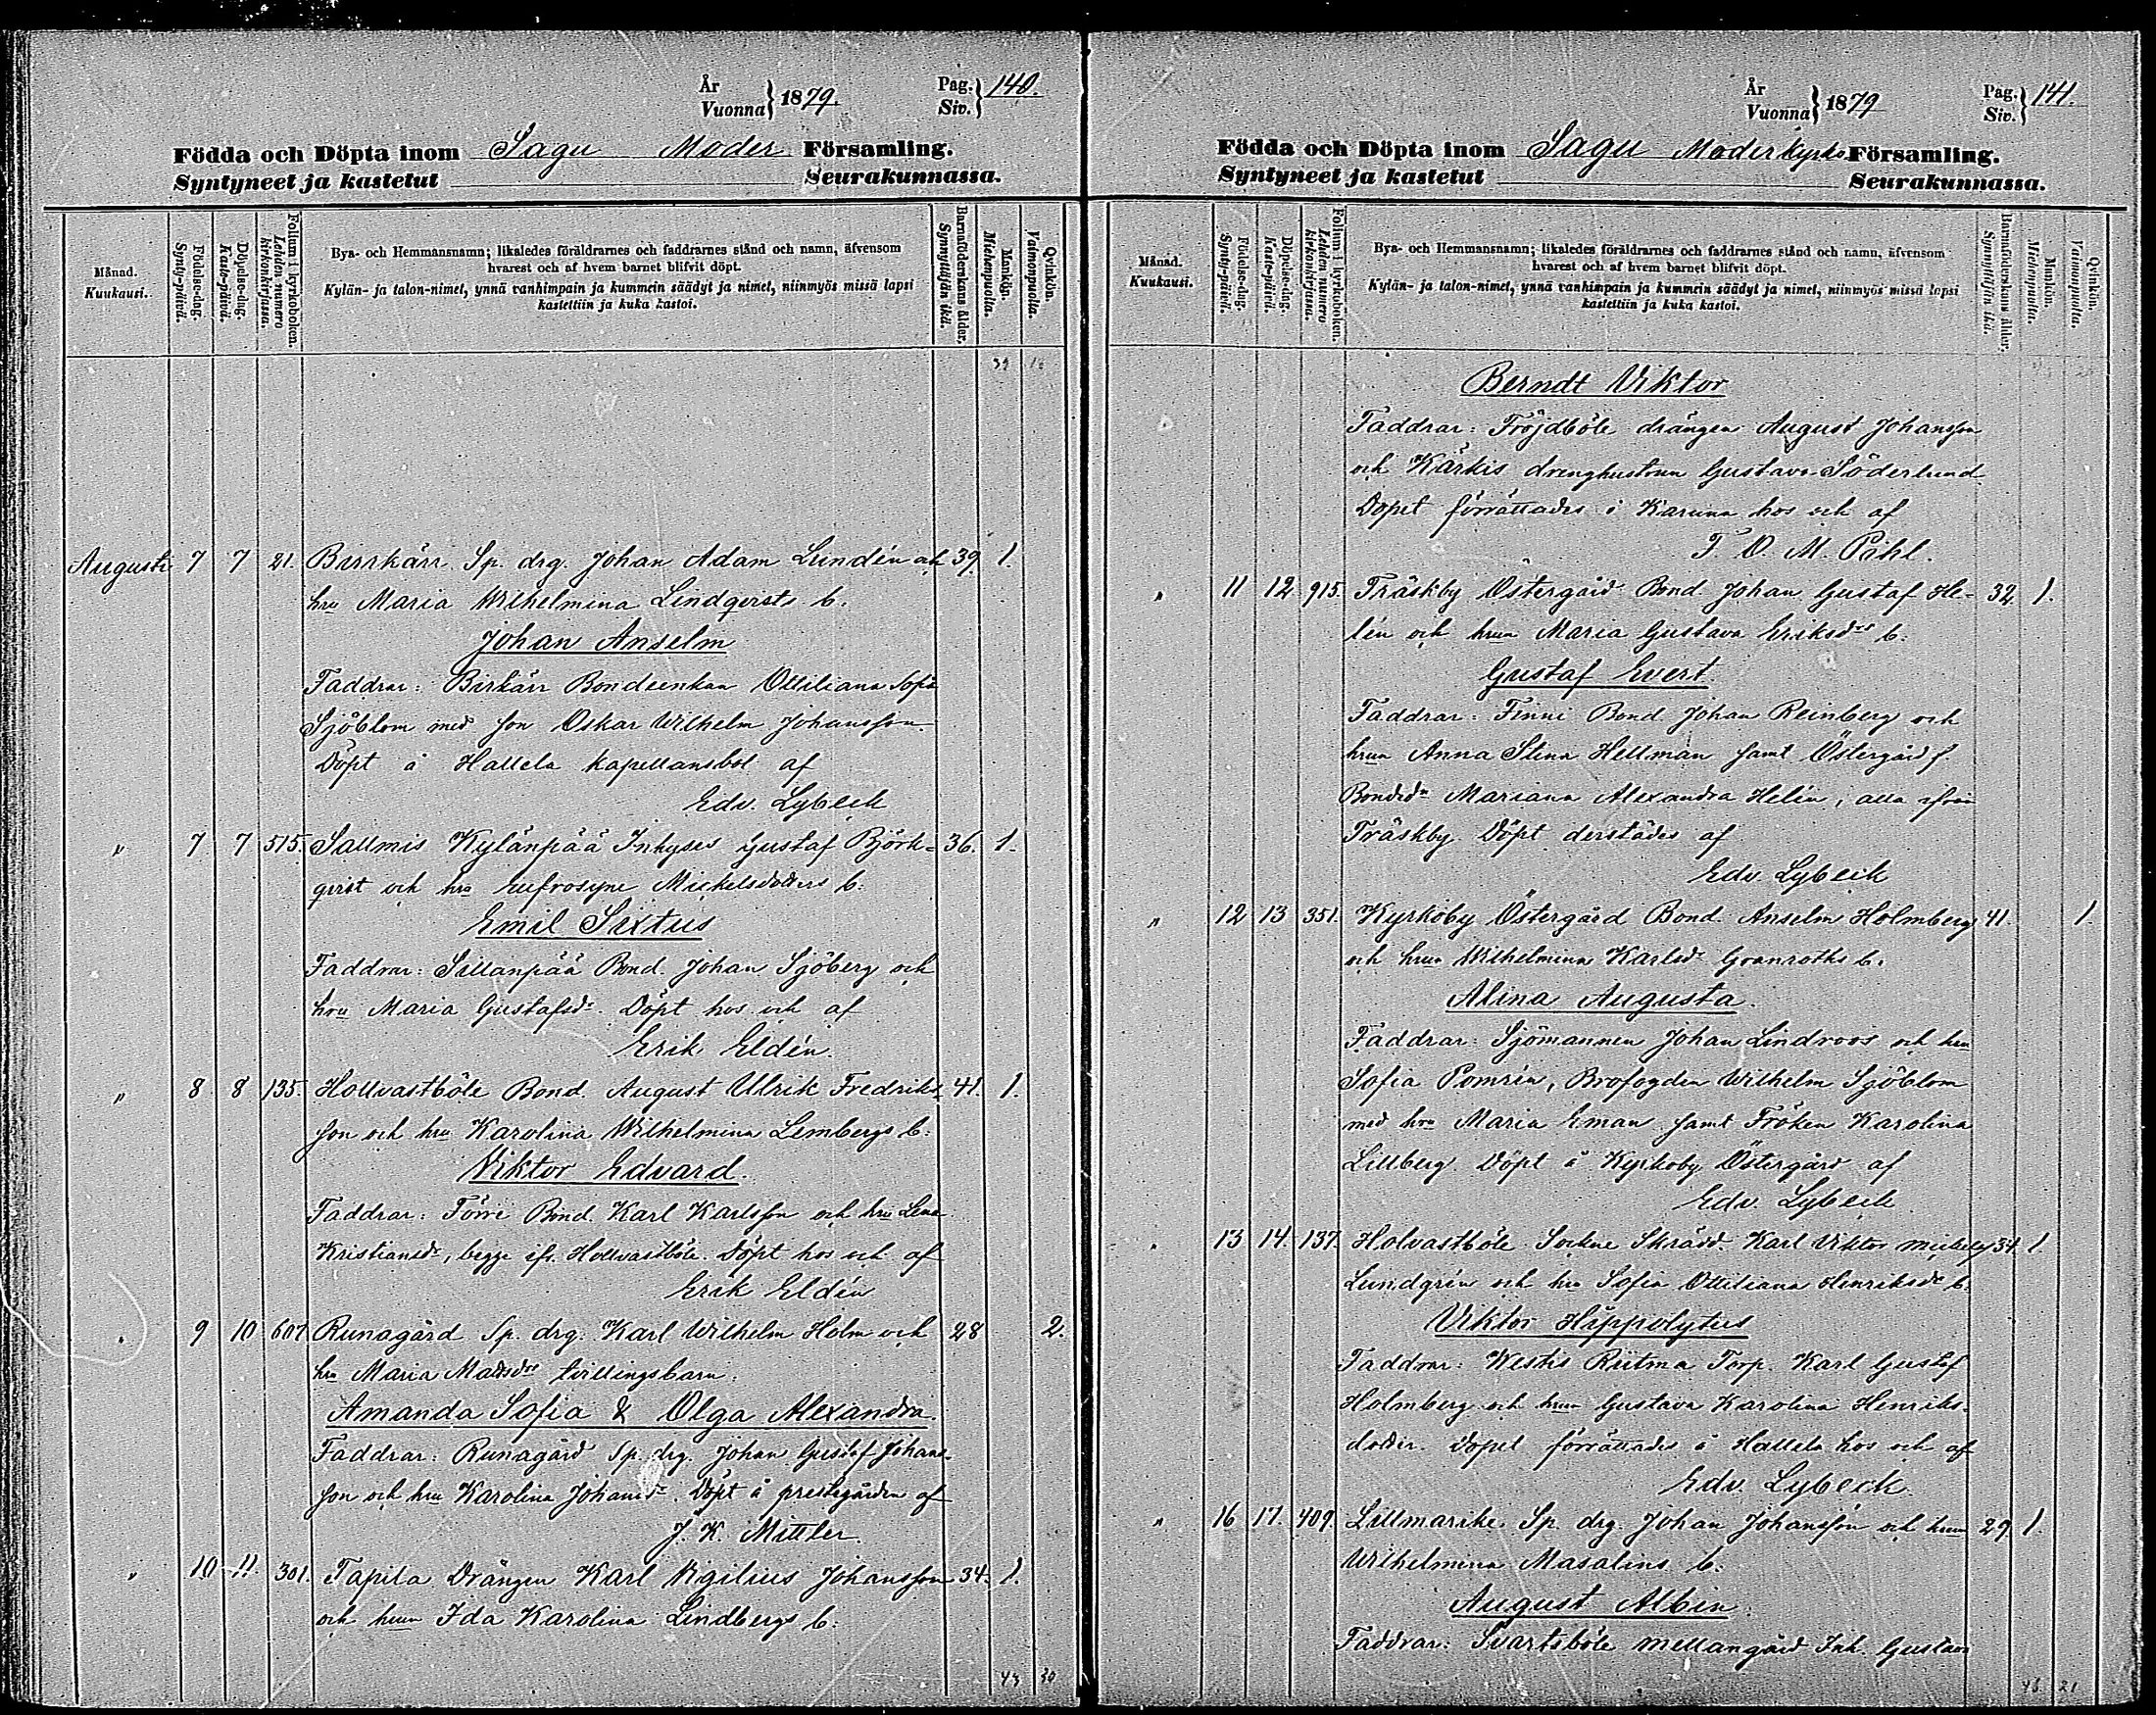 År
Vuonna } 1879.
Pag.
Siv. } 140.
Födda och Döpta inom Sagu Moder Församling.
Syntyneet ja kastetut Seurakunnassa.
Månad.
Kuukausi.
Födelse-dag.
Synty-päivä.
Döpelse-dag.
Kaste-päivä.
Folium i kyrkoboken.
Lehden numero kirkonkirjassa.
Bya- och Hemmansnamn; likaledes föräldrarnes och faddrarnes stånd och namn, äfvensom
hvarest och af hvem barnet blifvit döpt.
Kylän- ja talon-nimet, ynnä vanhimpain ja kummein säädyt ja nimet, niinmyös missä lapsi
kastettiin ja kuka kastoi.
Barnaföderskans ålder.
Synnyttäjän ikä.
Mankön.
Miehenpuolia.
Qvinkön.
Vaimonpuolia.
Augusti 7 7 21. Birrkärr Sp. drg. Johan Adam Lundén och 39 1.
hru Maria Wilhelmina Lindqvists b.
Johan Anselm
Faddrar: Birkärr Bondeenkan Ottiliana Sofia
Sjöblom med son Oskar Wilhelm Johansson
Döpt å Hallela kapellansbol af
Edv. Lybeck
" 7 7 515. Sallmis Kylänpää Inhyses Gustaf Björk- 36. 1.
qvist och hru Eufrosyne Mickelsdotters b.
Emil Sixtus
Faddrar: Sillanpää Bond. Johan Sjöberg och
hru Maria Gustafsdr. Döpt hos och af
Erik Eldén.
" 8 8 135. Hollvastböle Bond. August Ulrik Fredriks- 41. 1.
son och hru Karolina Wilhelmina Lembergs b.
Viktor Edvard.
Faddrar: Förri Bond. Karl Karlsson och hru Lena
Kristiansdr, begge ifr. Hollvastböle. Döpt hos och af
Erik Eldén
" 9 10 607 Runagård Sp. drg. Karl Wilhelm Holm och 28 2.
hru Maria Matsdrs tvillingsbarn.
Amanda Sofia & Olga Alexandra.
Faddrar: Runagård Sp. drg. Johan Gustaf Johans-
son och hru Karolina Johansdr. Döpt å prestegården af
J. K. Mittler.
" 10 11. 301. Tapila Drängen Karl Vigilius Johansson 34. 1.
och hrun Ida Karolina Lindbergs b.
År
Vuonna } 1879
Pag.
Siv. } 141.
Födda och Döpta inom Sagu Moderkyrko Församling.
Syntyneet ja kastetut Seurakunnassa.
Månad.
Kuukausi.
Födelse-dag.
Synty-päivä.
Döpelse-dag.
Kaste-päivä.
Folium i kyrkoboken.
Lehden numero kirkonkirjassa.
Bya- och Hemmansnamn; likaledes föräldrarnes och faddrarnes stånd och namn, äfvensom
hvarest och af hvem barnet blifvit döpt.
Kylän- ja talon-nimet, ynnä vanhimpain ja kummein säädyt ja nimet, niinmyös missä lapsi
kastettiin ja kuka kastoi.
Barnaföderskans ålder.
Synnyttäjän ikä.
Mankön.
Miehenpuolia.
Qvinkön.
Vaimonpuolia.
Berndt Viktor
Faddrar: Fröjdböle drängen August Johansson
och Kärkis drenghustrun Gustava Söderlund
Dopet förrättades i Karuna hos och af
F. O. M. Pihl.
" 11 12 915. Träskby Östergård Bond. Johan Gustaf He- 32. 1.
lén och hrun Maria Gustava Eriksdrs b.
Gustaf Evert.
Faddrar: Finni Bond. Johan Reinberg och
hrun Anna Stina Hellman samt Östergård f.
Bondedn Mariana Alexandra Helén, alla ifrån
Träskby. Döpt derstädes af
Edv. Lybeck
" 12 13 351. Kyrkoby Östergård Bond. Anselm Holmberg 41. 1.
och hrun Wilhelmina Karlsdr Granroths b.
Alina Augusta.
Faddrar: Sjömannen Johan Lindroos och hru
Sofia Pomrén, Brofogden Wilhelm Sjöblom
med hru Maria Eman samt Fröken Karolina
Lillberg. Döpt å Kyrkoby Östergård af
Edv. Lybeck
" 13 14. 137. Holvastböle Sockne Skrädd. Karl Viktor 34. 1.
Lundgrén och hru Sofia Ottiliana Henriksdr b.
Viktor Hippolytus
Faddrar: Westis Riitma Torp. Karl Gustaf
Holmberg och hrun Gustava Karolina Henriks-
dotter. Dopet förrättades å Hallela hos och af
Edv. Lybeck.
" 16 17. 409. Lillmarike. Sp. drg. Johan Johansson och hrun 29. 1.
Wilhelmina Masalins b.
August Albin.
Faddrar: Svartsböle mellangård Inh. Gustav